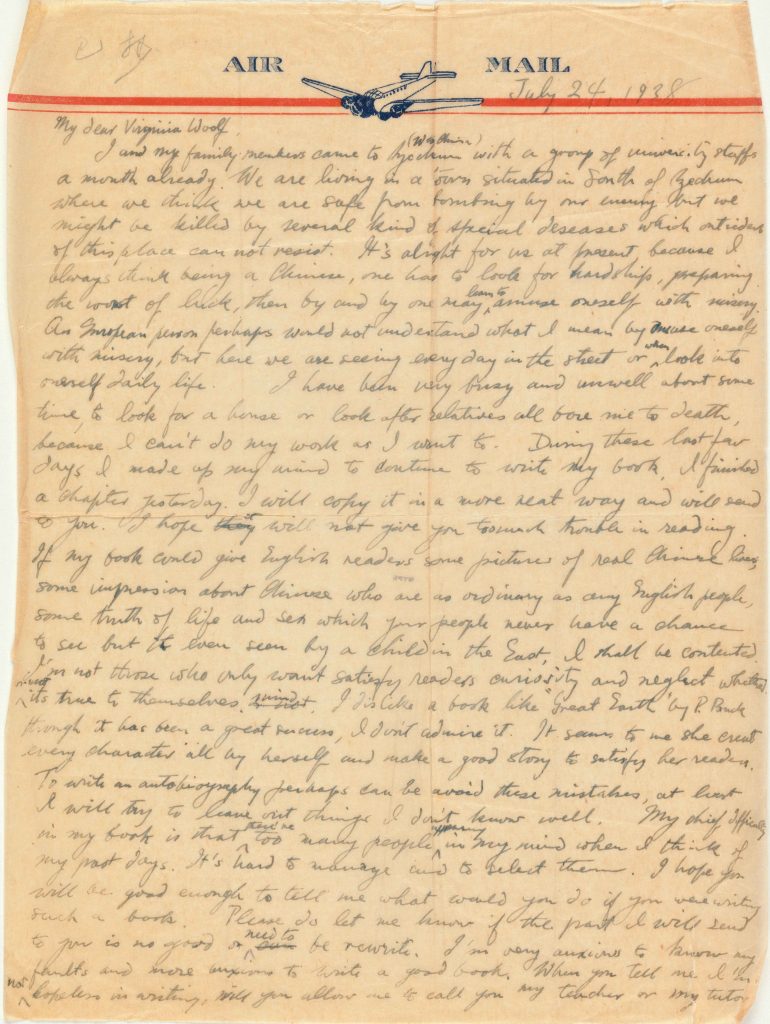 AIR MAIL
July 24, 1938
My dear Virginia Woolf,
(West China)
I and my family members came to Szechuan with a group of university staffs
a month already. We are living in a town situated in South of Szechuan
where we think we are safe from bombing by our enemy but we
might be killed by several kind of special deseases which outsiders
of this place can not resist. It's alright for us at present because I
always think being a Chinese, one has to look for hardship, preparing
the worst of luck, then by and by one may learn to amuse oneself with misery.
An European person perhaps would not understand what I mean by amuse oneself
with misery, but here we are seeing every day in the street or when look into
oneself daily life. I have been very busy and unwell about some
time, to look for a house or look after relatives all bore me to death,
because I can't do my work as I want to. During these last few
days I made up my mind to continue to write my book, I finished
a chapter yesterday. I will copy it in a more neat way and will send
to you. I hope it will not give you toomuch trouble in reading.
If my book could give English readers some pictures of real Chinese lives,
some impression about Chinese who are as ordinary as any English people,
some truth of life and sex which your people never have a chance
to see but it even seen by a child in the East, I shall be contented.
I'm not those who only want satisfy readers curiosity and neglect whether
its true to themselves. I dislike a book like "Great Earth" by P. Buck
though it has been a great success, I don't admire it. It seems to me she creat
every character all by herself and make a good story to satisfy her readers.
To write an autobiography perhaps can be avoid these mistakes, at least
I will try to leave out things I don't know well. My chief difficulty
in my book is that there're too many people in my mind when I think of
my past days. It's hard to manage and to select them. I hope you
will be good enough to tell me what would you do if you were writing
such a book. Please do let me know if the part I will send
to you is no good or need to be rewrite. I'm very anxious to know my
faults and more anxious to write a good book. When you tell me I'm
not hopeless in writing, will you allow me to call you my teacher or my tutor